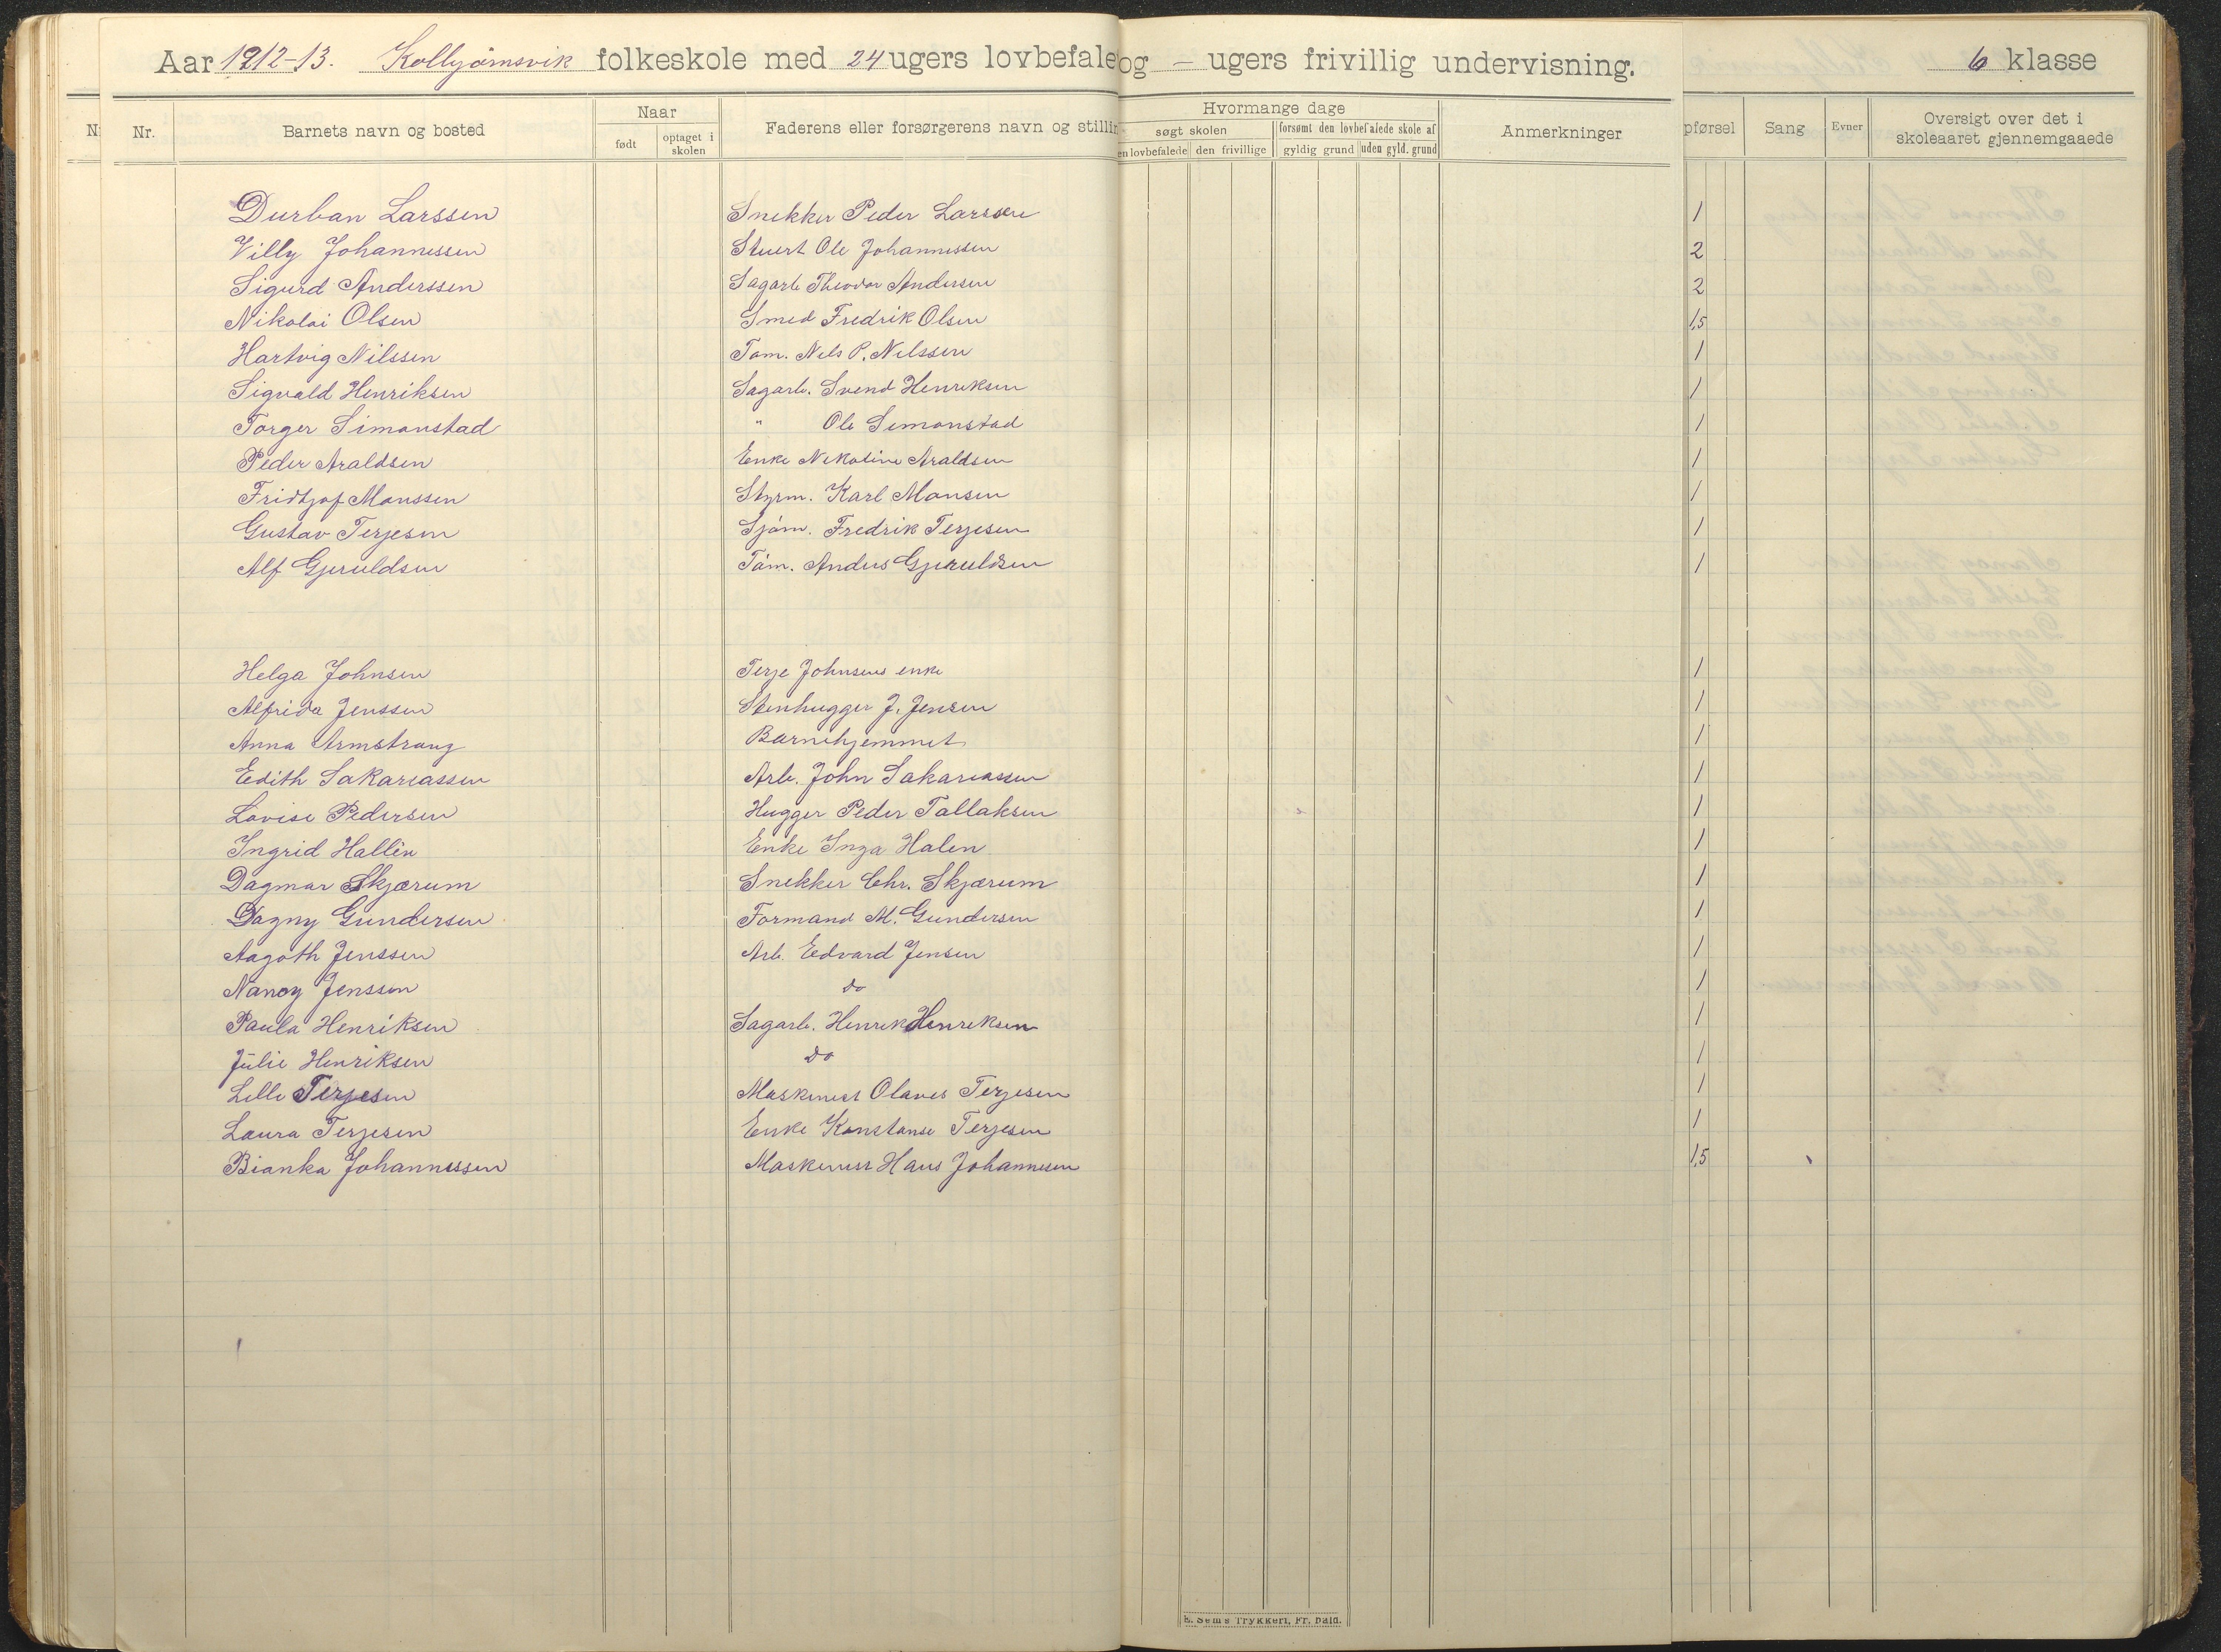 Aar 1912-13. Kolbjørnsvik folkeskole med 24 ugers lovbefale og – ugers frivillig undervisning. 6 klasse
Nr. Barnets navn og bosted Naar født optaget i skolen Faderens eller forsørgerens navn og stillin Hvormange dage søgt skolen en lovbefalede den frivillige forsømt den lovbefalede skole af gyldig grund uden gyld. grund Anmerkninger pførsel Sang Evner Oversigt over det i skoleaaret gjennemgaaede
Durban Larssen Snekker Peder Larssen 1
Villy Johannessen Stuert Ole Johannessen 2
Sigurd Anderssen Sagarb Theodor Andersen 2
Nikolai Olsen Smed Fredrik Olsen 1,5
Hartvig Nilssen Tøm. Nils P. Nilssen 1
Sigvald Henriksen Sagarb. Svend Henriksen 1
Torger Simonstad " Ole Simonstad 1
Peder Araldsen Enke Nikoline Araldsen 1
Fridtjof Monssen Styrm. Karl Monsen 1
Gustav Terjesen Sjøm. Fredrik Terjesen 1
Alf Gjeruldsen Tøm. Anders Gjeruldsen 1
Helga Johnsen Terje Johnsens enke 1
Alfrida Jenssen Stenhugger J. Jensen 1
Anna Armstrong Barnehjemmet 1
Edith Sakariassen Arb. John Sakariassen 1
Lovise Pedersen Hugger Peder Tallaksen 1
Ingrid Hallèn Enke Inga Halen 1
Dagmar Skjærum Snekker Chr. Skjærum 1
Dagny Gundersen Formand M. Gundersen 1
Aagoth Jenssen Arb. Edvard Jensen 1
Nancy Jenssen do 1
Paula Henriksen Sagarb. Henrik Henriksen 1
Julie Henriksen do 1
Lilli Terjesen Maskinist Olaves Terjesen 1
Laura Terjesen Enke Konstanse Terjesen 1
Bianka Johannessen Maskinist Hans Johannesen 1,5
E. Sem's Trykkeri, Fr. hald.